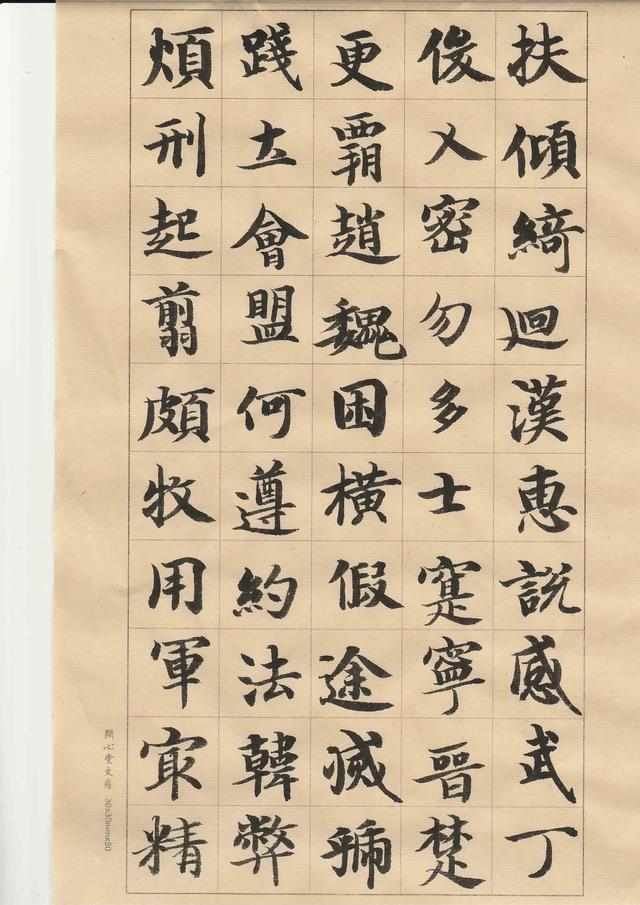 扶傾綺迴漢惠説感武丁
俊乂密勿多士寔寧晉楚
更覇趙魏困橫假途滅虢
踐圡會盟何遵約法韓弊
煩刑起翦頗牧用軍冣精
心堂文房 30x30mmx50